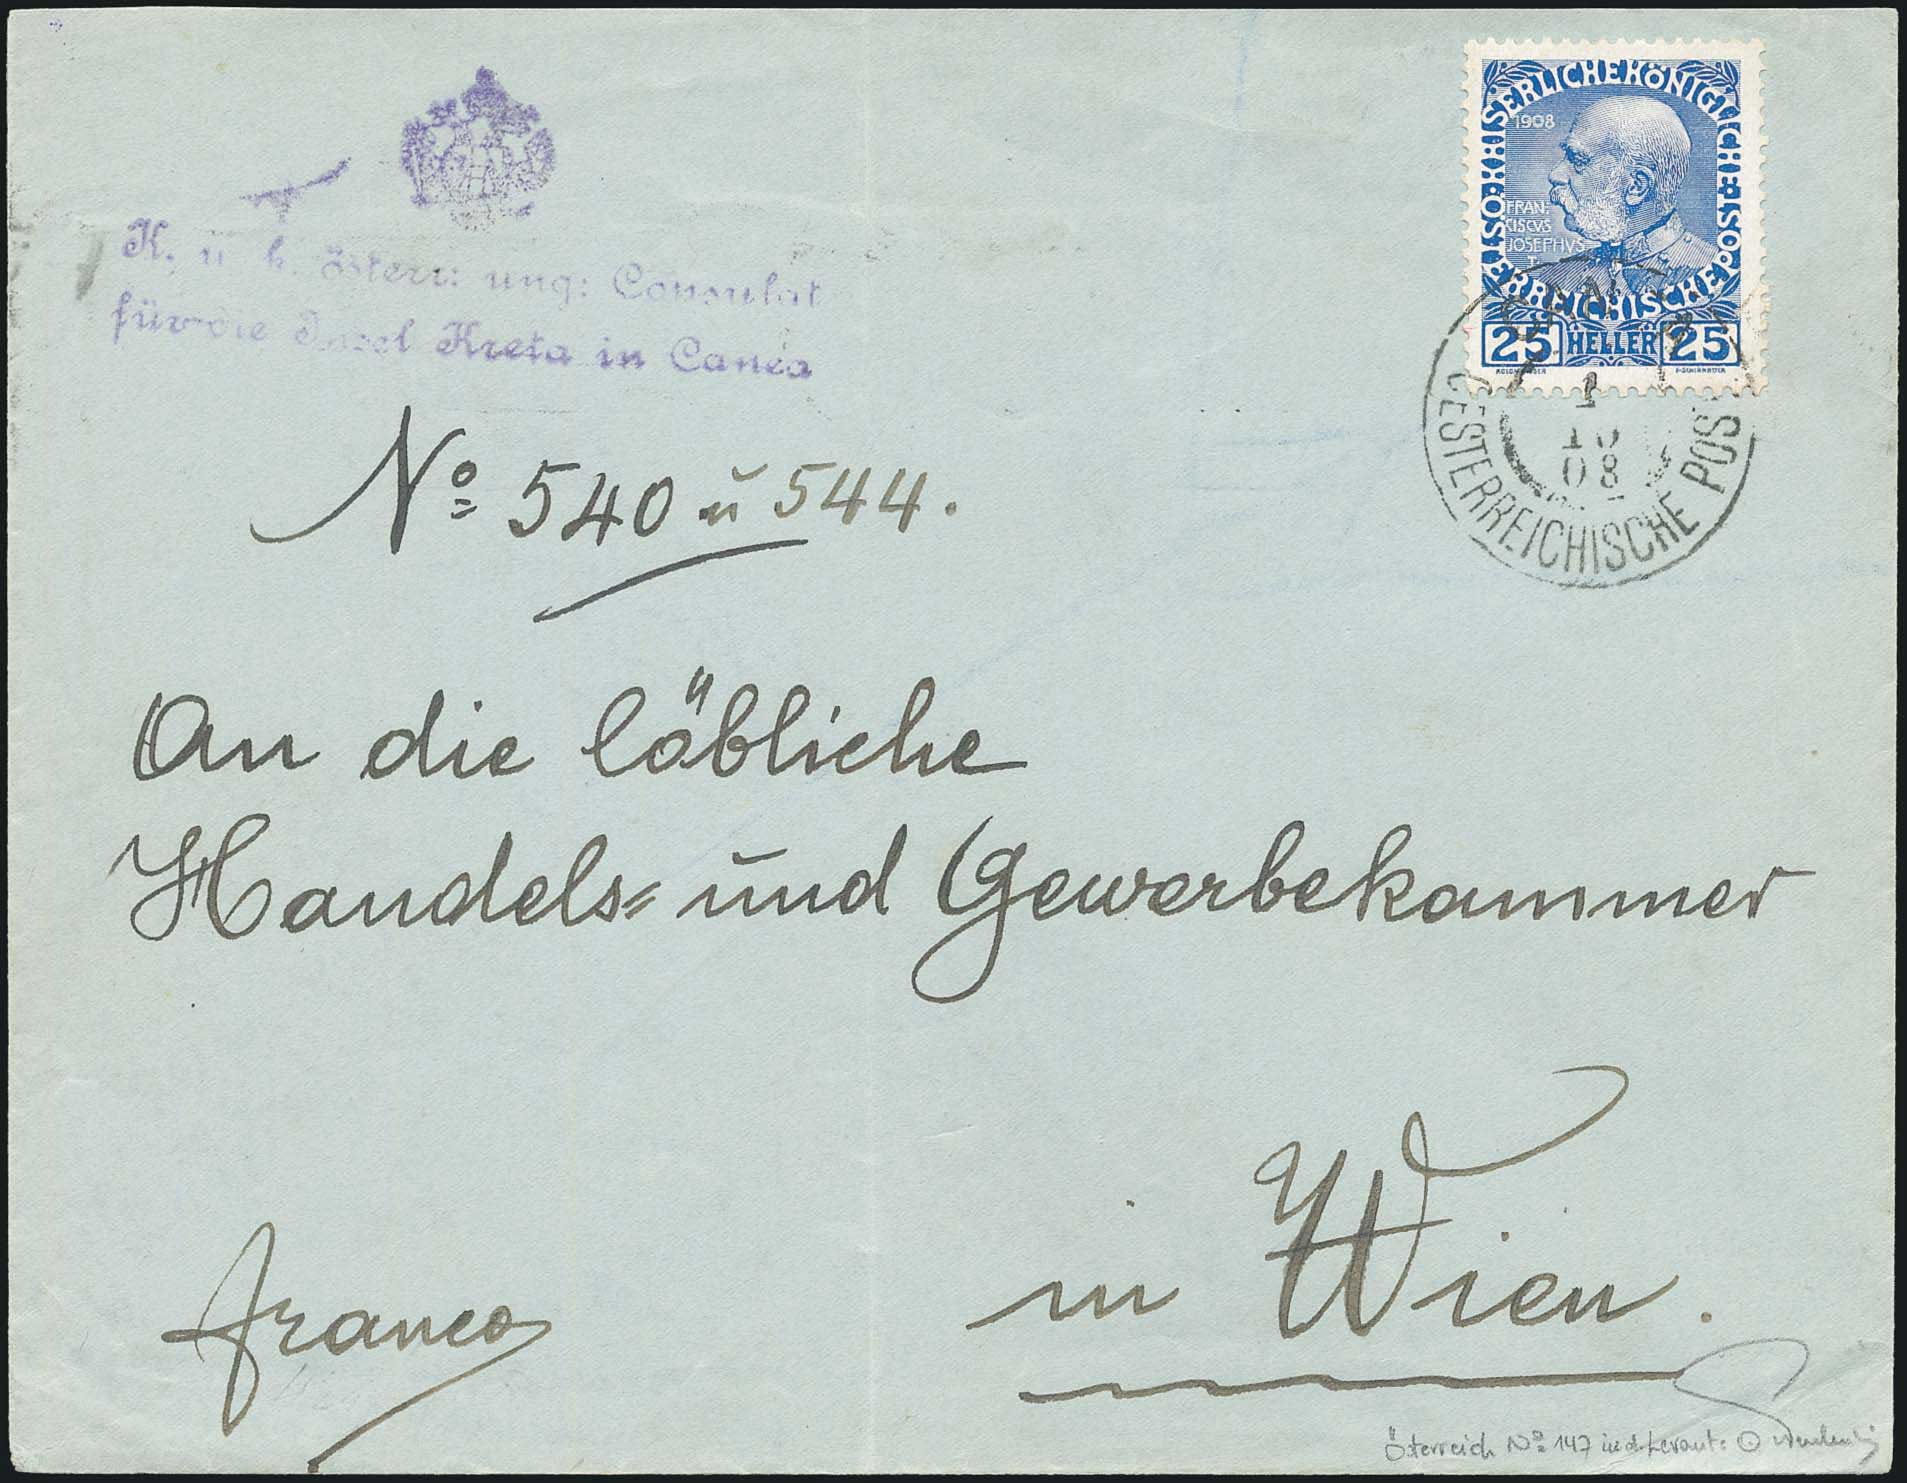 K. u k. österr: ung: Consulat
für die Insel Kreta in Canea
Nº 540 u 544.
KAISERLICHE KÖNIGLICHE
ÖSTERREICHISCHE POST
1908
FRAN-
CISCVS
JOSEPHVS
I.
25 HELLER 25
1
10
08
OESTERREICHISCHE POST
An die löbliche
Handels= und Gewerbekammer
in Wien.
franco
Österreich Nº 147 in d. Levante